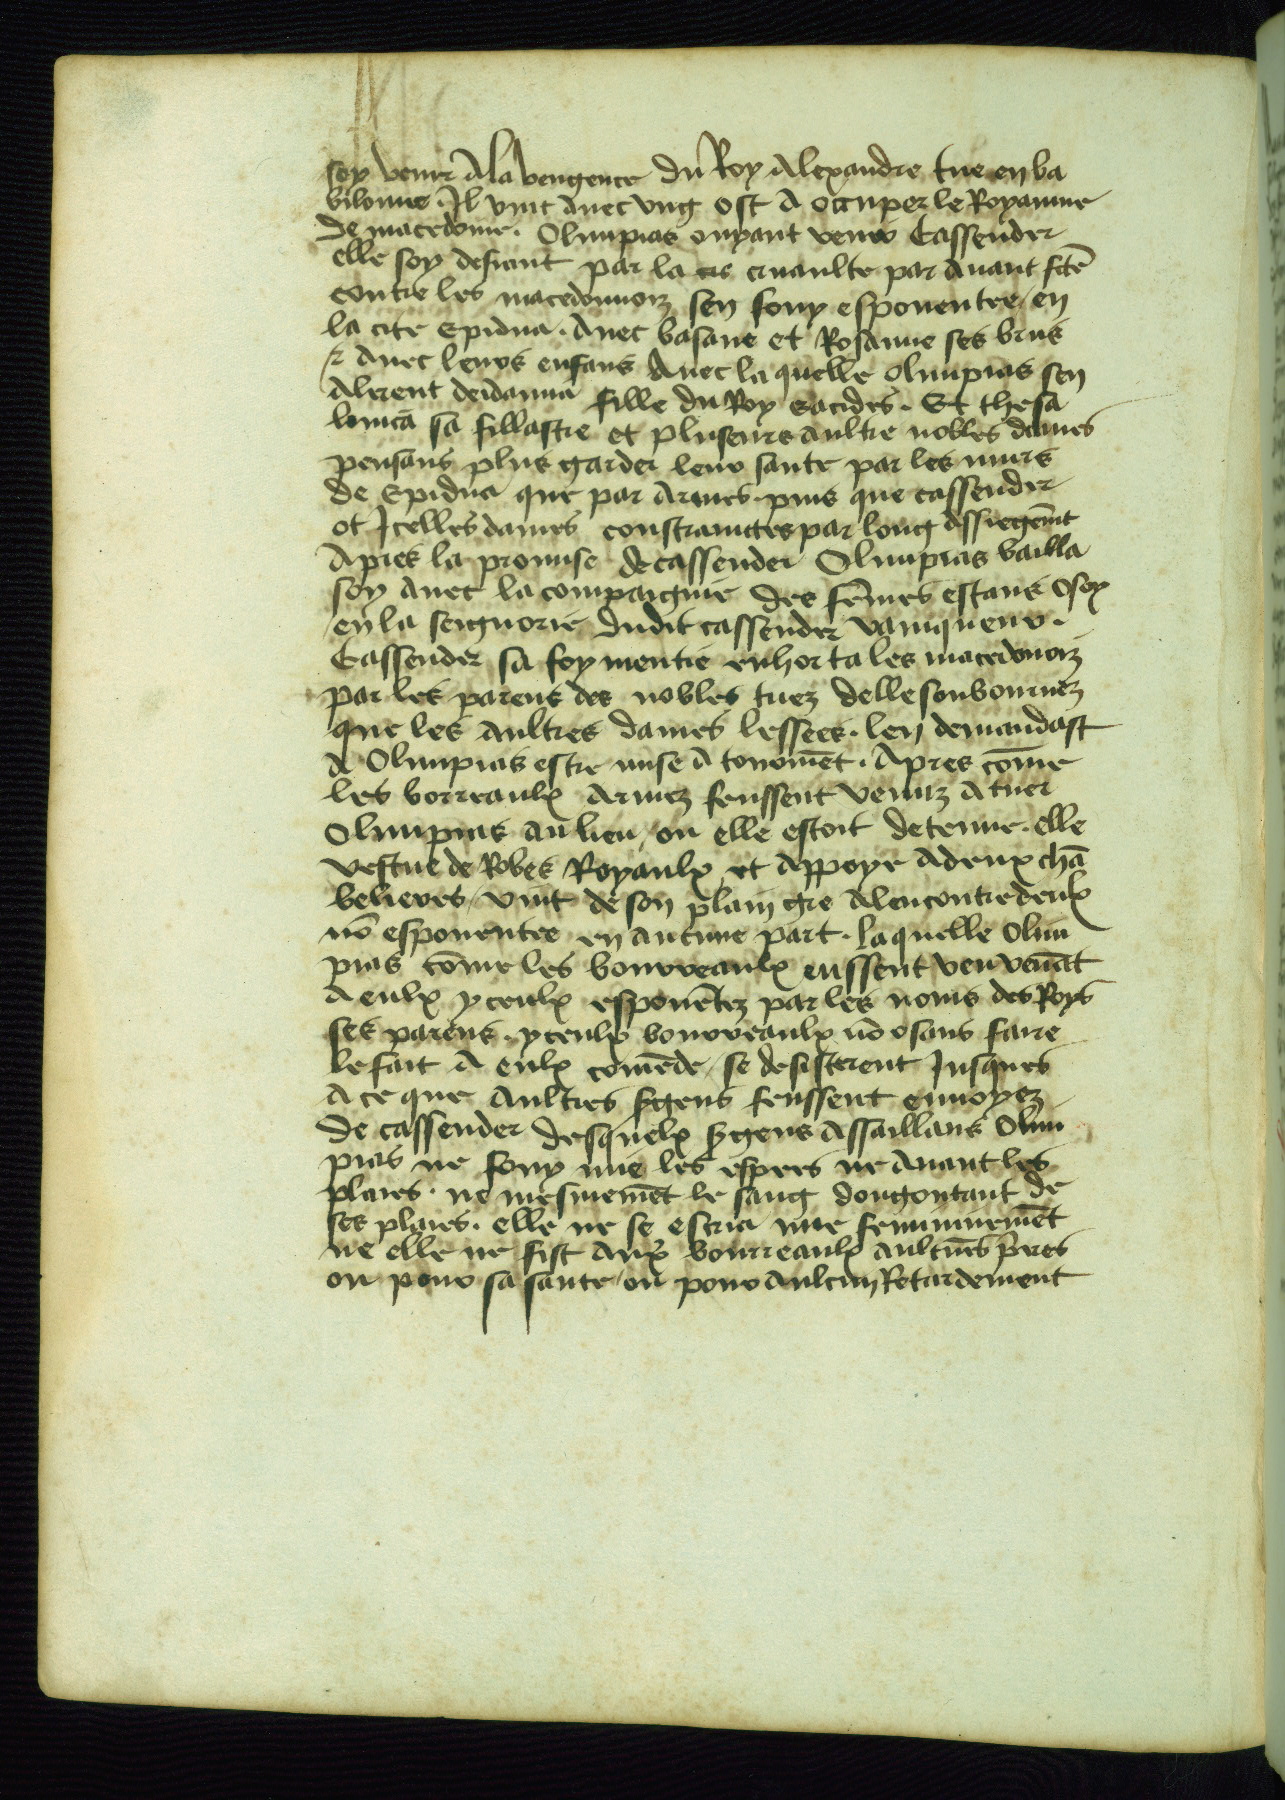 soy venir A la vengence du Roy Alexandre tue en ba
bilonne . Il vint avec ung ost A occuper le Royaume
de macedonie . Olimpias ouyant venir Cassender
elle soy defiant par la cruaulte par avant fcte
contre les macedonnoiz sen fouy espouentee en
la cite Epidua . Avec basane et Rosanne ses brus
et avec leurs enfans Avec la quelle olimpias sen
Alerent deidamia fille du Roy Eacides . Et thesa
lonica sa fillastre et pluseurs aultre nobles dames
pensans plus garder leur sante par les murs
de Epidua que par Armes . puis que cassender
ot Icelles dames constraintes par long Assiegemt
Apres la promise de cassender Olimpias bailla
soy avec la compaignie des fēmes estans o soy
en la seignorie dudit cassender vainqueur .
Cassender sa foy mentie enhorta les macedonoiz
par les parens des nobles tuez delle soubournez
que les aultres dames lessees . len demandast
de Olimpias estre mise A tourmēt . Apres cōme
les borreaulx Armez feussent venuz A tuer
Olimpias au lieu ou elle estoit detenue . elle
vestue de Robes Royaulx et Appoye A deux chā
belieres vint de son plain gre Alencontre deulx
nō espouentee en aucune part . laquelle olim
pias cōme les bourreaulx eussent veu venāt
A eulx yceulx espouētez par les noms des Roys
ses parens . yceulx bourreaulx nō osans faire
le fait A eulx comēde se desisterent Jusques
A ce que Aultres sgens feussent envoyez
de cassender desquelx sgens Assaillans olim
pias ne fouy mie les espees ne Avant les
plaies . ne mesmemēt le sang dougoutant de
ses plaies . elle ne se escria mie femininemēt
ne elle ne fist Aux bourreaulx aulcūes pres
ou pour sa sante ou pour Aulcun Retardement